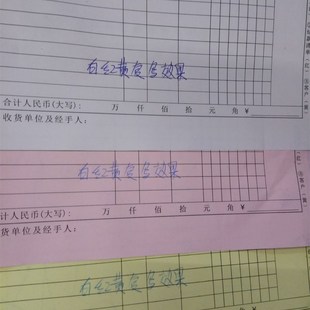 白红黄复写效果
合计人民币(大写): 万 仟 佰 拾 元 角 ¥
收货单位及经手人:
白红黄复写效果
计人民币(大写): 万 仟 佰 拾 元 角 ¥
货单位及经手人:
白红黄复写效果